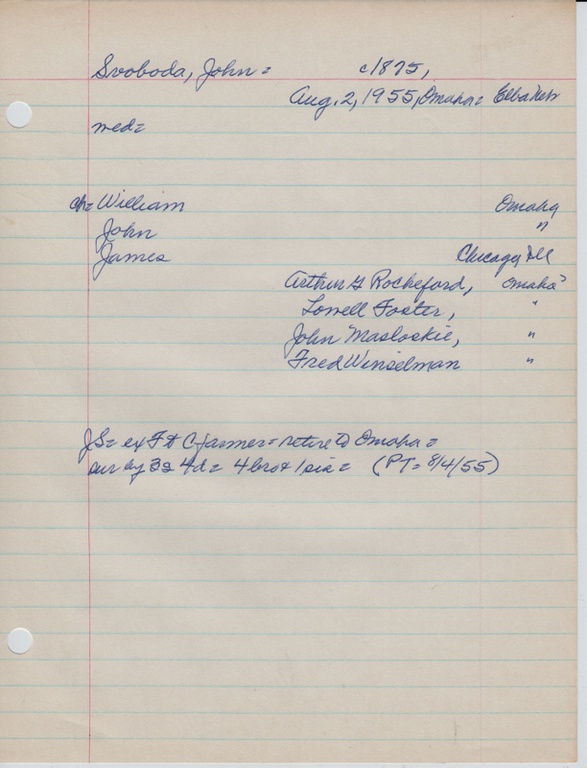 Svoboda, John = c1875,
Aug. 2, 1955, Omaha = Elba Neb
med =
ch = William Omaha
John "
James Chicago, Ill
Arthur G Rocheford, Omaha
Lowell Foster, "
John Masloskie, "
Fred Winselman "
JS = ex farmer = retire to Omaha =
sur by 3s 4d = 4 bro & 1 sis = (PT = 8/4/55)